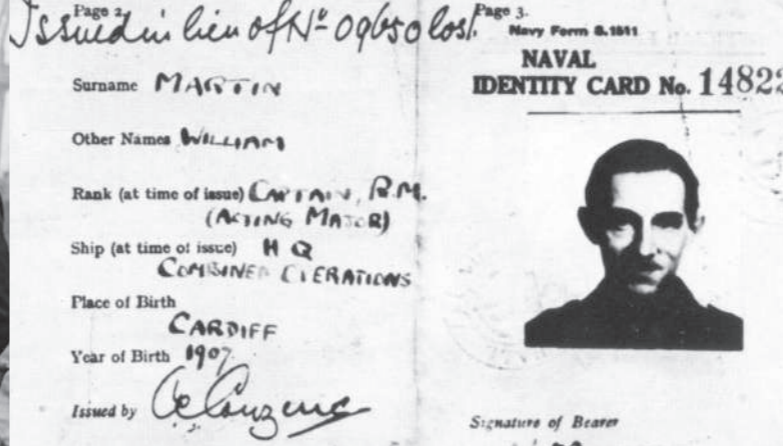 Page 2.
Issued in lieu of No 09650 lost.
Surname MARTIN
Other Names WILLIAM
Rank (at time of issue) CAPTAIN, R.M.
(ACTING MAJOR)
Ship (at time of issue) H Q
COMBINED OPERATIONS
Place of Birth
CARDIFF
Year of Birth 1907
Issued by
Page 3.
Navy Form S.1511
NAVAL
IDENTITY CARD No. 14822
Signature of Bearer